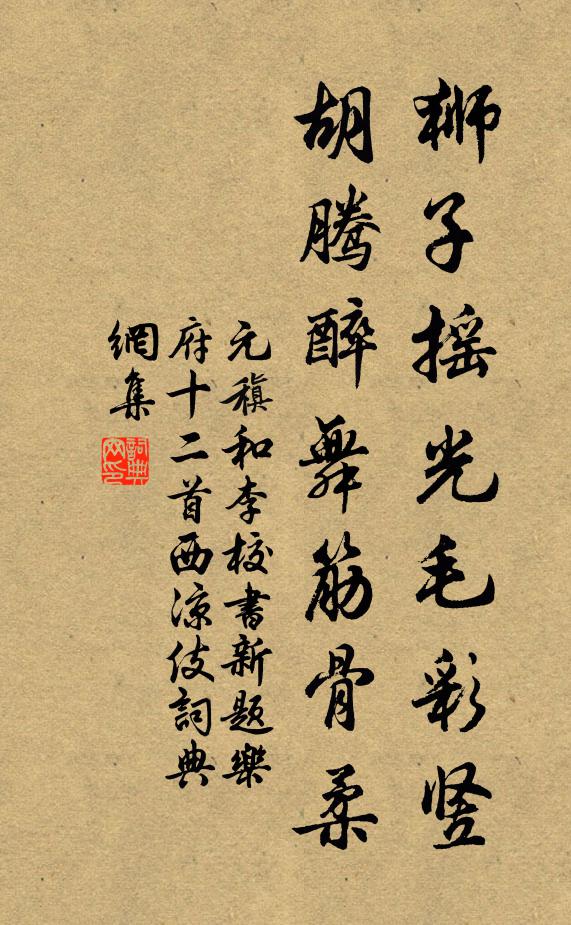 狮子摇光毛彩竖
胡腾醉舞筋骨柔
元稹和李校書新題樂
府十二首西凉伎詞典
網集
詞典網印